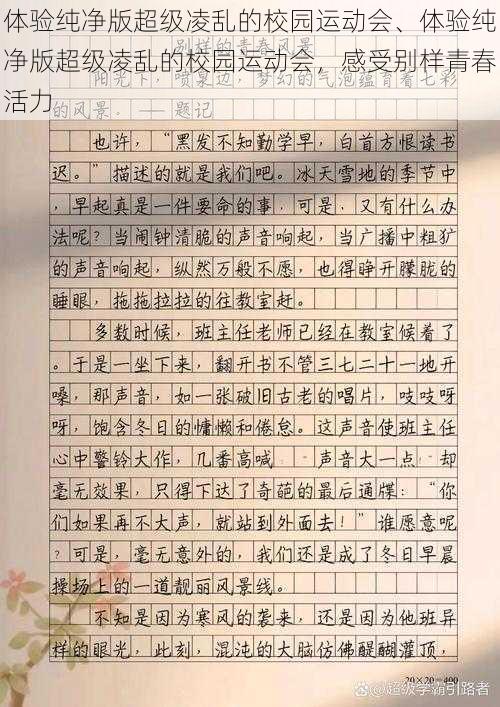 体验纯净版超级凌乱的校园运动会、体验纯
净版超级凌乱的校园运动会，感受别样青春
活力
别样的青春风景
阳光下，喷泉边，梦幻的气泡蕴育着七彩
的风景。——题记
也许，“黑发不知勤学早，白首方恨读书
迟。”描述的就是我们吧。冰天雪地的季节中
，早起真是一件要命的事，可是，又有什么办
法呢？当闹钟清脆的声音响起，当广播中粗犷
的声音响起，纵然万般不愿，也得睁开朦胧的
睡眼，拖拖拉拉的往教室赶。
多数时候，班主任老师已经在教室候着了
。于是一坐下来，翻开书不管三七二十一地开
嗓，那声音，如一张破旧古老的唱片，吱吱呀
呀，饱含冬日的慵懒和倦怠。这声音使班主任
心中警铃大作，几番高喊 声音大一点 却
毫无效果，只得下达了奇葩的最后通牒：“你
们如果再不大声，就站到外面去！”谁愿意呢
？可是，毫无意外的，我们还是成了冬日早晨
操场上的一道靓丽风景线。
不知是因为寒风的袭来，还是因为他班异
样的眼光，此刻，混沌的大脑仿佛醍醐灌顶，
20×20=400
@超级学霸引路者